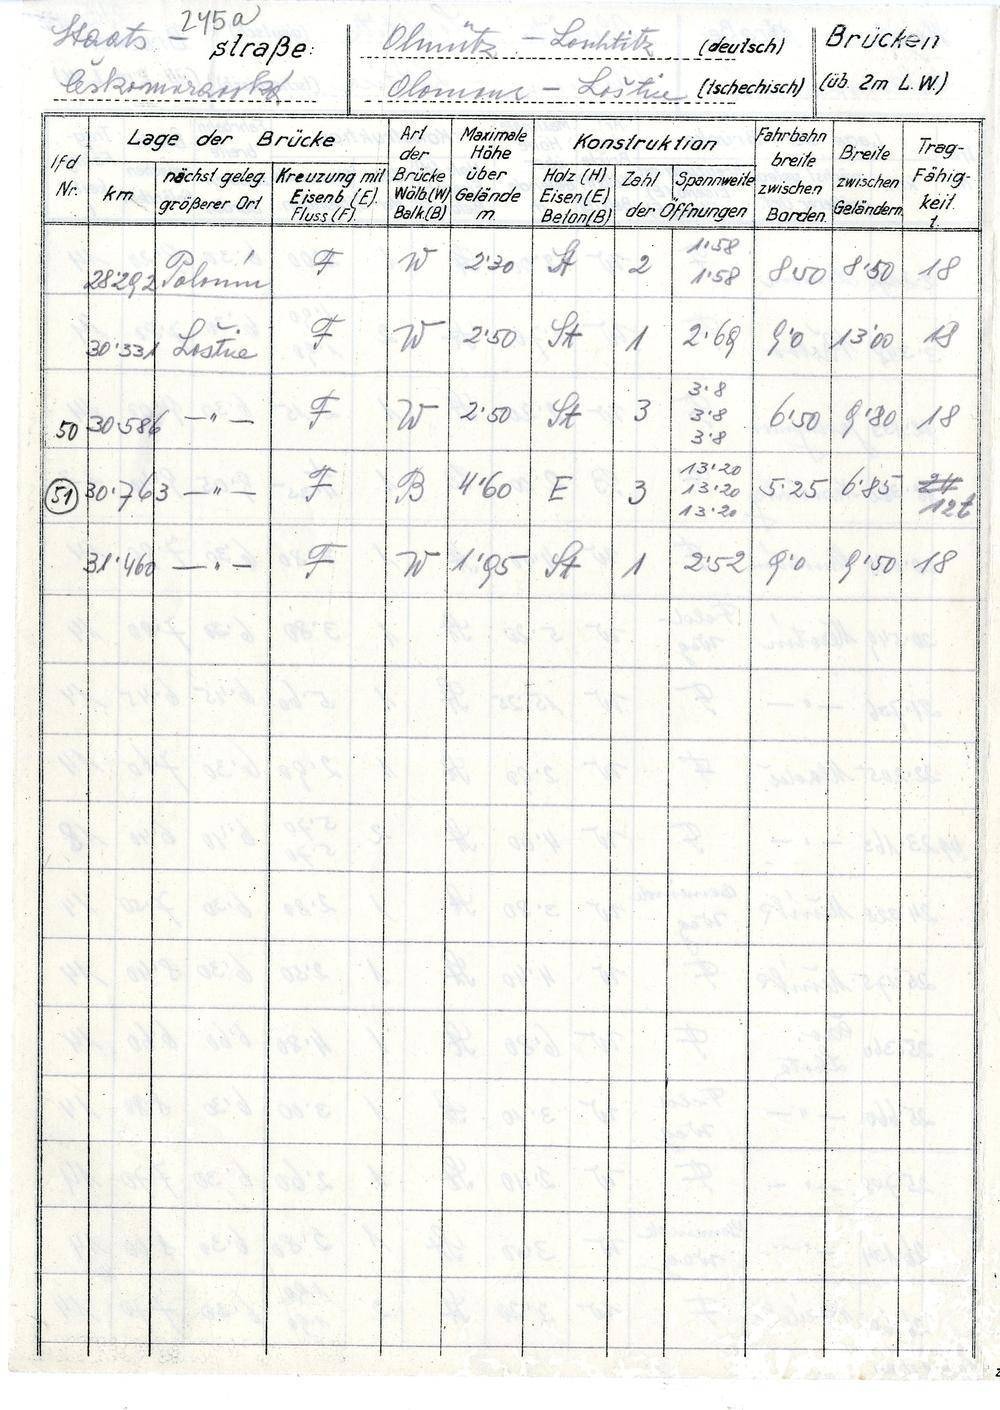 245a
Staats- straße: Olmütz - Loschtitz (deutsch) Brücken
Českomoravská Olomouc - Loštice (tschechisch) (üb. 2m L.W.)
lfd Nr.
Lage der Brücke
km
nächst geleg. größerer Ort
Kreuzung mit Eisenb (E). Fluss (F).
Art der Brücke Wölb(W) Balk.(B)
Maximale Höhe über Gelände m.
Konstruktion
Holz (H) Eisen (E) Beton (B)
Zahl Spannweite
der Öffnungen
Fahrbahn breite zwischen Borden
Breite zwischen Geländern
Trag- Fähig- keit t.
28·292 Polonín F W 2·30 St 2 1·58 1·58 8·50 8·50 18
30·331 Loštice F W 2·50 St 1 2·69 9·0 13·00 18
50 30·586 -"- F W 2·50 St 3 3·8 3·8 3·8 6·50 9·80 18
51 30·763 -"- F B 4·60 E 3 13·20 13·20 13·20 5·25 6·85 24 12t
31·460 -"- F W 1·95 St 1 2·52 9·0 9·50 18